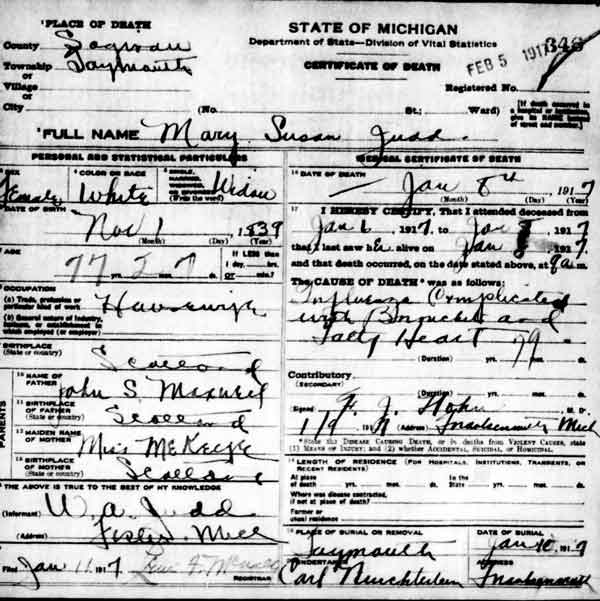 PLACE OF DEATH
STATE OF MICHIGAN
Department of State—Division of Vital Statistics
CERTIFICATE OF DEATH
FEB 5 1917
346
County Saginaw
Township Taymouth
or
Village
or
City (No. St.; Ward)
Registered No.
[If death occurred in a hospital or institution, give its NAME instead of street and number.]
FULL NAME Mary Susan Judd
PERSONAL AND STATISTICAL PARTICULARS
SEX Female
COLOR OR RACE White
SINGLE, MARRIED, WIDOWED OR DIVORCED (Write the word) Widow
DATE OF BIRTH
Nov 1, 1839
(Month) (Day) (Year)
AGE
77 yrs. 2 mos. 7 ds.
If LESS than 1 day, hrs. or min.?
OCCUPATION
(a) Trade, profession or particular kind of work Housewife
(b) General nature of industry, business, or establishment in which employed (or employer)
BIRTHPLACE
(State or country) Scotland
PARENTS
10 NAME OF FATHER John S. Maxwell
11 BIRTHPLACE OF FATHER (State or country) Scotland
12 MAIDEN NAME OF MOTHER Miss McKenzie
13 BIRTHPLACE OF MOTHER (State or country) Scotland
THE ABOVE IS TRUE TO THE BEST OF MY KNOWLEDGE
(Informant) W. a. Judd
(Address) Mich
Filed Jan 11 1917
REGISTRAR
MEDICAL CERTIFICATE OF DEATH
16 DATE OF DEATH
Jan 8th, 1917
(Month) (Day) (Year)
17 I HEREBY CERTIFY, That I attended deceased from
Jan 6, 1917, to Jan 8, 1917
that I last saw her alive on Jan 8, 1917,
and that death occurred, on the date stated above, at 9 a.m.
The CAUSE OF DEATH* was as follows:
Influenza Complicated
with and
Fatty Heart 79
(Duration) yrs. mos. ds.
Contributory.
(SECONDARY)
(Duration) yrs. mos. ds.
Signed F. J. M. D.
1/9 (Address) Frankenmuth Mich
*State the DISEASE CAUSING DEATH, or in deaths from VIOLENT CAUSES, state (1) MEANS OF INJURY; and (2) whether ACCIDENTAL, SUICIDAL or HOMICIDAL.
18 LENGTH OF RESIDENCE (FOR HOSPITALS, INSTITUTIONS, TRANSIENTS, OR RECENT RESIDENTS)
At place of death yrs. mos. ds. In the State yrs. mos. ds.
Where was disease contracted, if not at place of death?
Former or usual residence
19 PLACE OF BURIAL OR REMOVAL Taymouth
DATE OF BURIAL Jan 10, 1917
UNDERTAKER Carl Nuechterlein
ADDRESS Frankenmuth